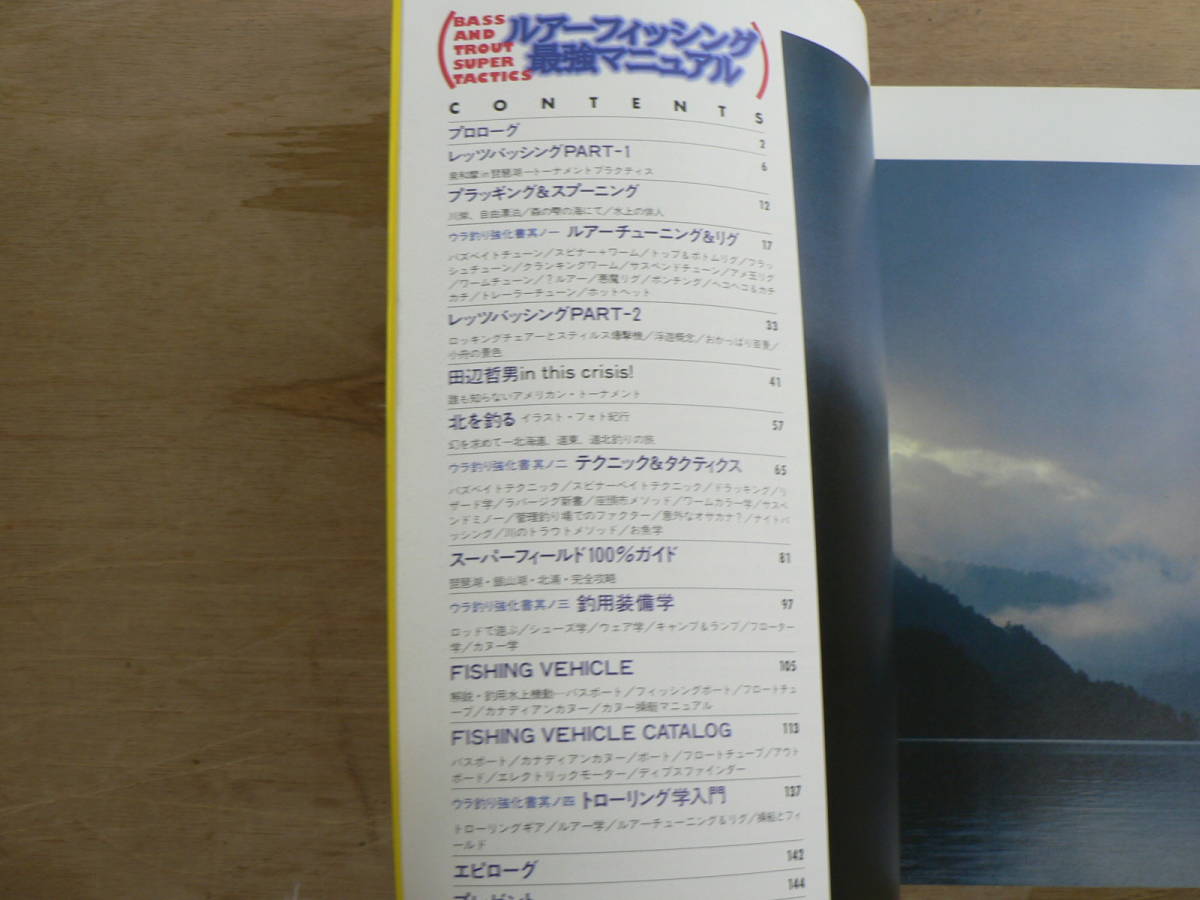 BASS
AND
TROUT
SUPER
TACTICS
ルアーフィッシング
最強マニュアル
CONTENTS
プロローグ 2
レッツバッシングPART-1 6
泉和摩in琵琶湖―トーナメントプラクティス
プラッギング&スプーニング 12
川柴、自由漂泊／森の雫の海にて／水上の旅人
ウラ釣り強化書其ノ一 ルアーチューニング&リグ 17
バズベイトチューン／スピナー+ワーム／トップ&ボトムリグ／フラッ
シュチューン／クランキングワーム／サスペンドチューン／アメ玉リグ
／ワームチューン／?ルアー／悪魔リグ／ポンチング／ヘコヘコ&カチ
カチ／トレーラーチューン／ホットヘット
レッツバッシングPART-2 33
ロッキングチェアーとスティルス爆撃機／浮遊概念／おかっぱり百景／
小舟の景色
田辺哲男in this crisis! 41
誰も知らないアメリカン・トーナメント
北を釣る イラスト・フォト紀行 57
幻を求めて―北海道、道東、道北釣りの旅
ウラ釣り強化書其ノ二 テクニック&タクティクス 65
バズベイトテクニック／スピナーベイトテクニック／ドラッキング／リ
ザード学／ラバージグ新書／座頭市メソッド／ワームカラー学／サスペ
ンドミノー／管理釣り場でのファクター／意外なオサカナ?／ナイトバ
ッシング／川のトラウトメソッド／お魚学
スーパーフィールド100%ガイド 81
琵琶湖・飯山湖・北浦・完全攻略
ウラ釣り強化書其ノ三 釣用装備学 97
ロッドで遊ぶ／シューズ学／ウェア学／キャンプ&ランプ／フローター
学／カヌー学
FISHING VEHICLE 105
解説・釣用水上機動―バスボート／フィッシングボート／フロートチュ
ーブ／カナディアンカヌー／カヌー操艇マニュアル
FISHING VEHICLE CATALOG 113
バスボート／カナディアンカヌー／ボート／フロートチューブ／アウト
ボード／エレクトリックモーター／ディプスファインダー
ウラ釣り強化書其ノ四 トローリング学入門 137
トローリングギア／ルアー学／ルアーチューニング&リグ／操船とフィ
ールド
エピローグ 142
プレゼント 144